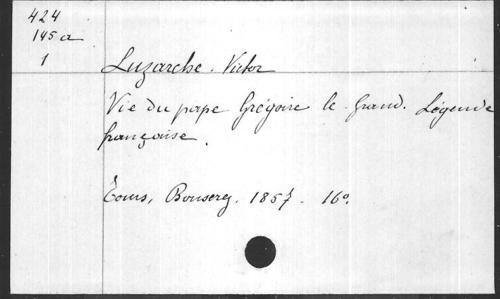 424
145 a
1
Luzarche. Victor
Vie du pape Grégoire le Grand. Légende
française.
Tours, Bouserez. 1857. 16°.